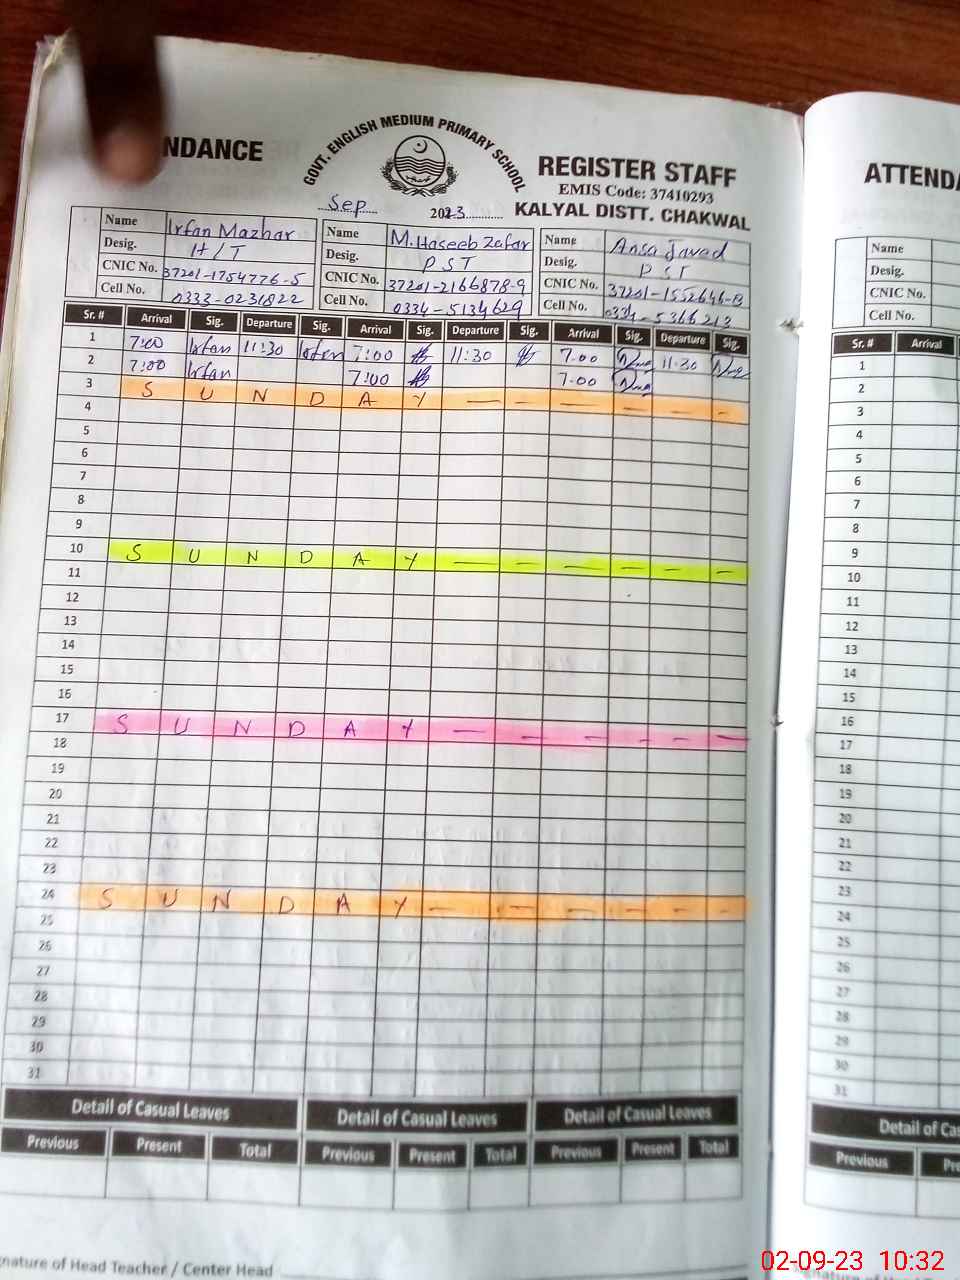 NDANCE
GOVT. ENGLISH MEDIUM PRIMARY SCHOOL
REGISTER STAFF
EMIS Code: 37410293
KALYAL DISTT. CHAKWAL
Sep 2023
Name Irfan Mazhar Name M. Haseeb Zafar Name Ansa Javed
Desig. H/T Desig. PST Desig. PST
CNIC No. 37201-1754776-5 CNIC No. 37201-2166878-9 CNIC No. 37201-1552646-8
Cell No. 0333-0231822 Cell No. 0334-5134629 Cell No. 0334-5366213
Sr. # Arrival Sig. Departure Sig. Arrival Sig. Departure Sig. Arrival Sig. Departure Sig.
1 7:00 Irfan 11:30 Irfan 7:00 11:30 7.00 11.30
2 7:00 Irfan 7:00 7.00
3 S U N D A Y — — — — — —
4
5
6
7
8
9
10 S U N D A Y — — — — — —
11
12
13
14
15
16
17 S U N D A Y — — — — — —
18
19
20
21
22
23
24 S U N D A Y — — — — — —
25
26
27
28
29
30
31
Detail of Casual Leaves Detail of Casual Leaves Detail of Casual Leaves
Previous Present Total Previous Present Total Previous Present Total
nature of Head Teacher / Center Head
ATTENDA
Name
Desig.
CNIC No.
Cell No.
Sr. # Arrival
1
2
3
4
5
6
7
8
9
10
11
12
13
14
15
16
17
18
19
20
21
22
23
24
25
26
27
28
29
30
31
Detail of Cas
Previous Pre
02-09-23 10:32